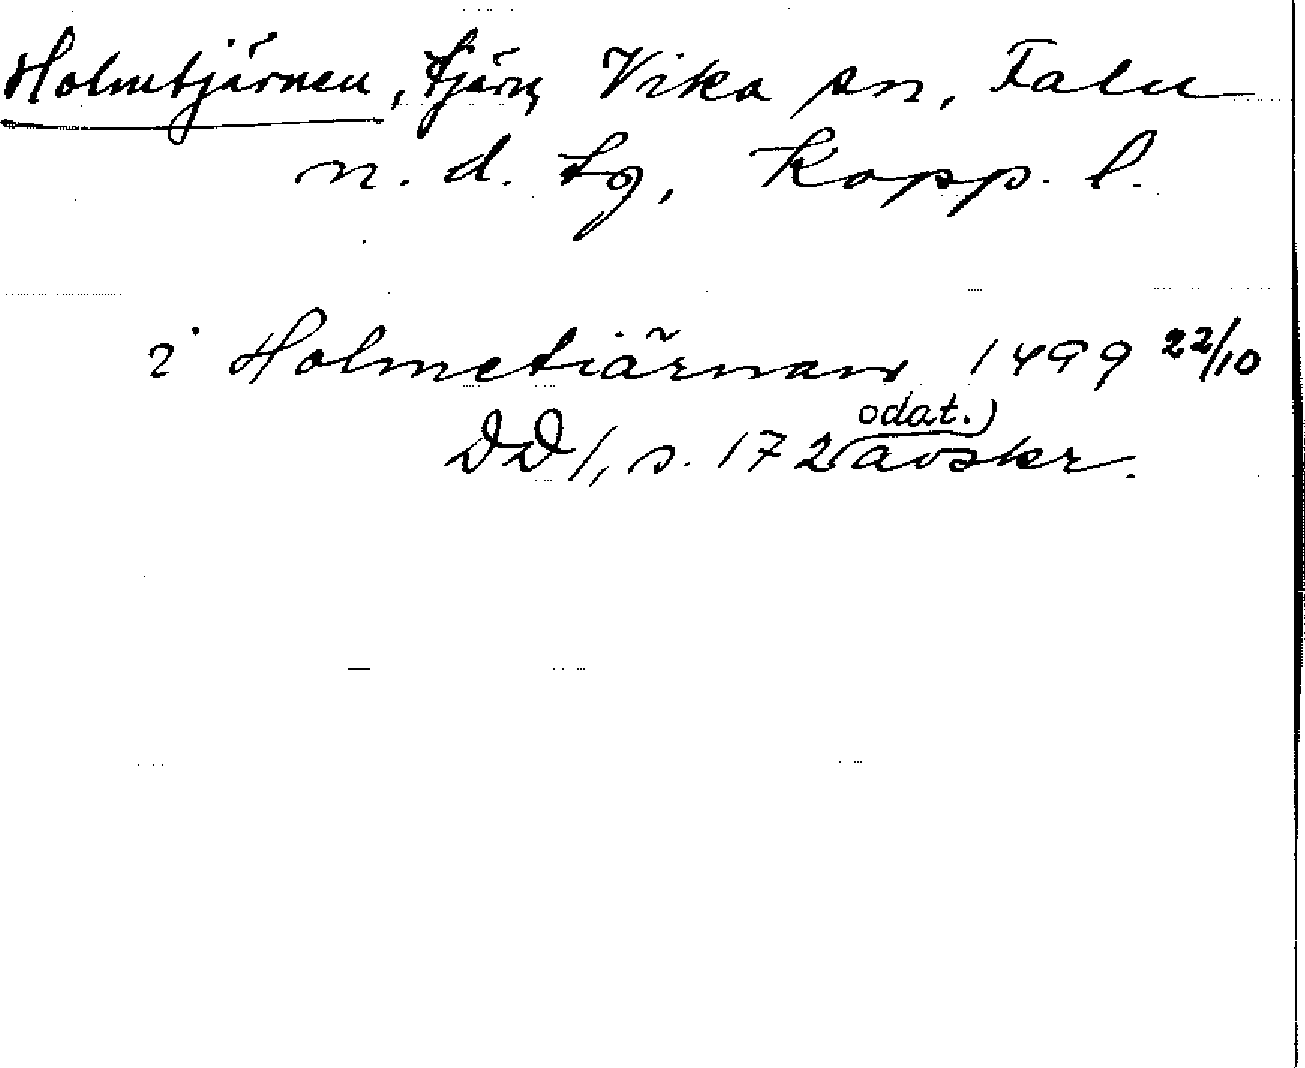 Holmtjärnen, tjärn, Vika sn, Falu
n. d. tg, Kopp. l.
i Holmetiärnan 1499 22/10
DD 1, s. 172 (odat. avskr.)